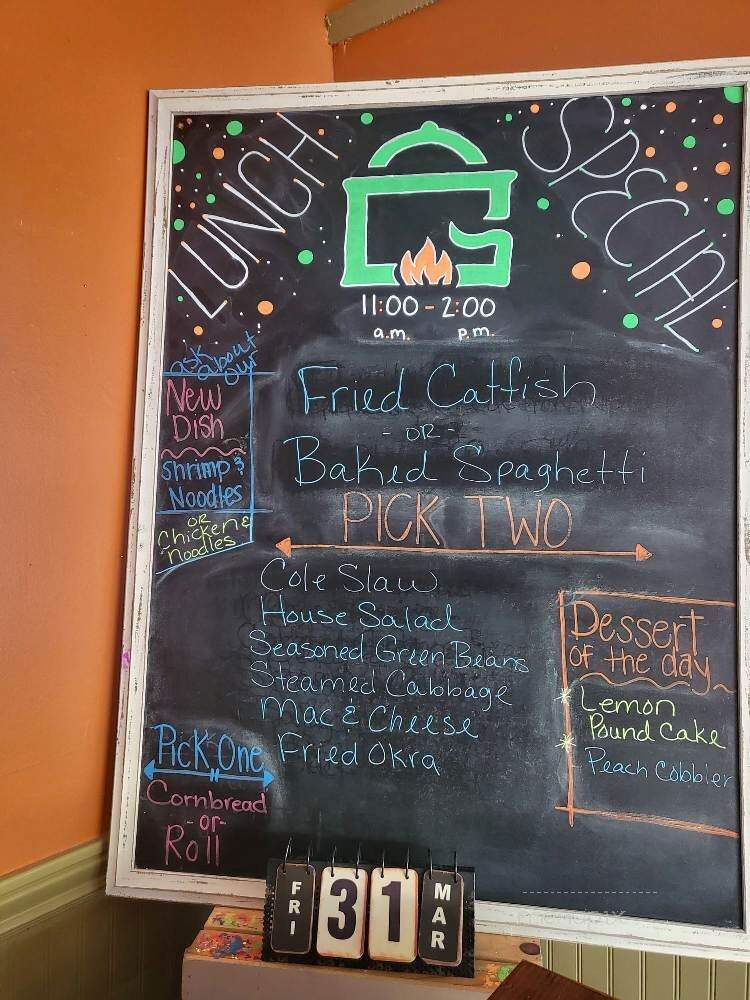 LUNCH SPECIAL
11:00 - 2:00
a.m. p.m.
ask
about
our
New
Dish
Shrimp &
Noodles
OR
Chicken &
Noodles
Fried Catfish
- OR -
Baked Spaghetti
PICK TWO
Cole Slaw
House Salad
Seasoned Green Beans
Steamed Cabbage
Mac & Cheese
Fried Okra
Pick One
Cornbread
- or -
Roll
Dessert
of the day
* Lemon
Pound Cake
* Peach Cobbler
FRI 31 MAR